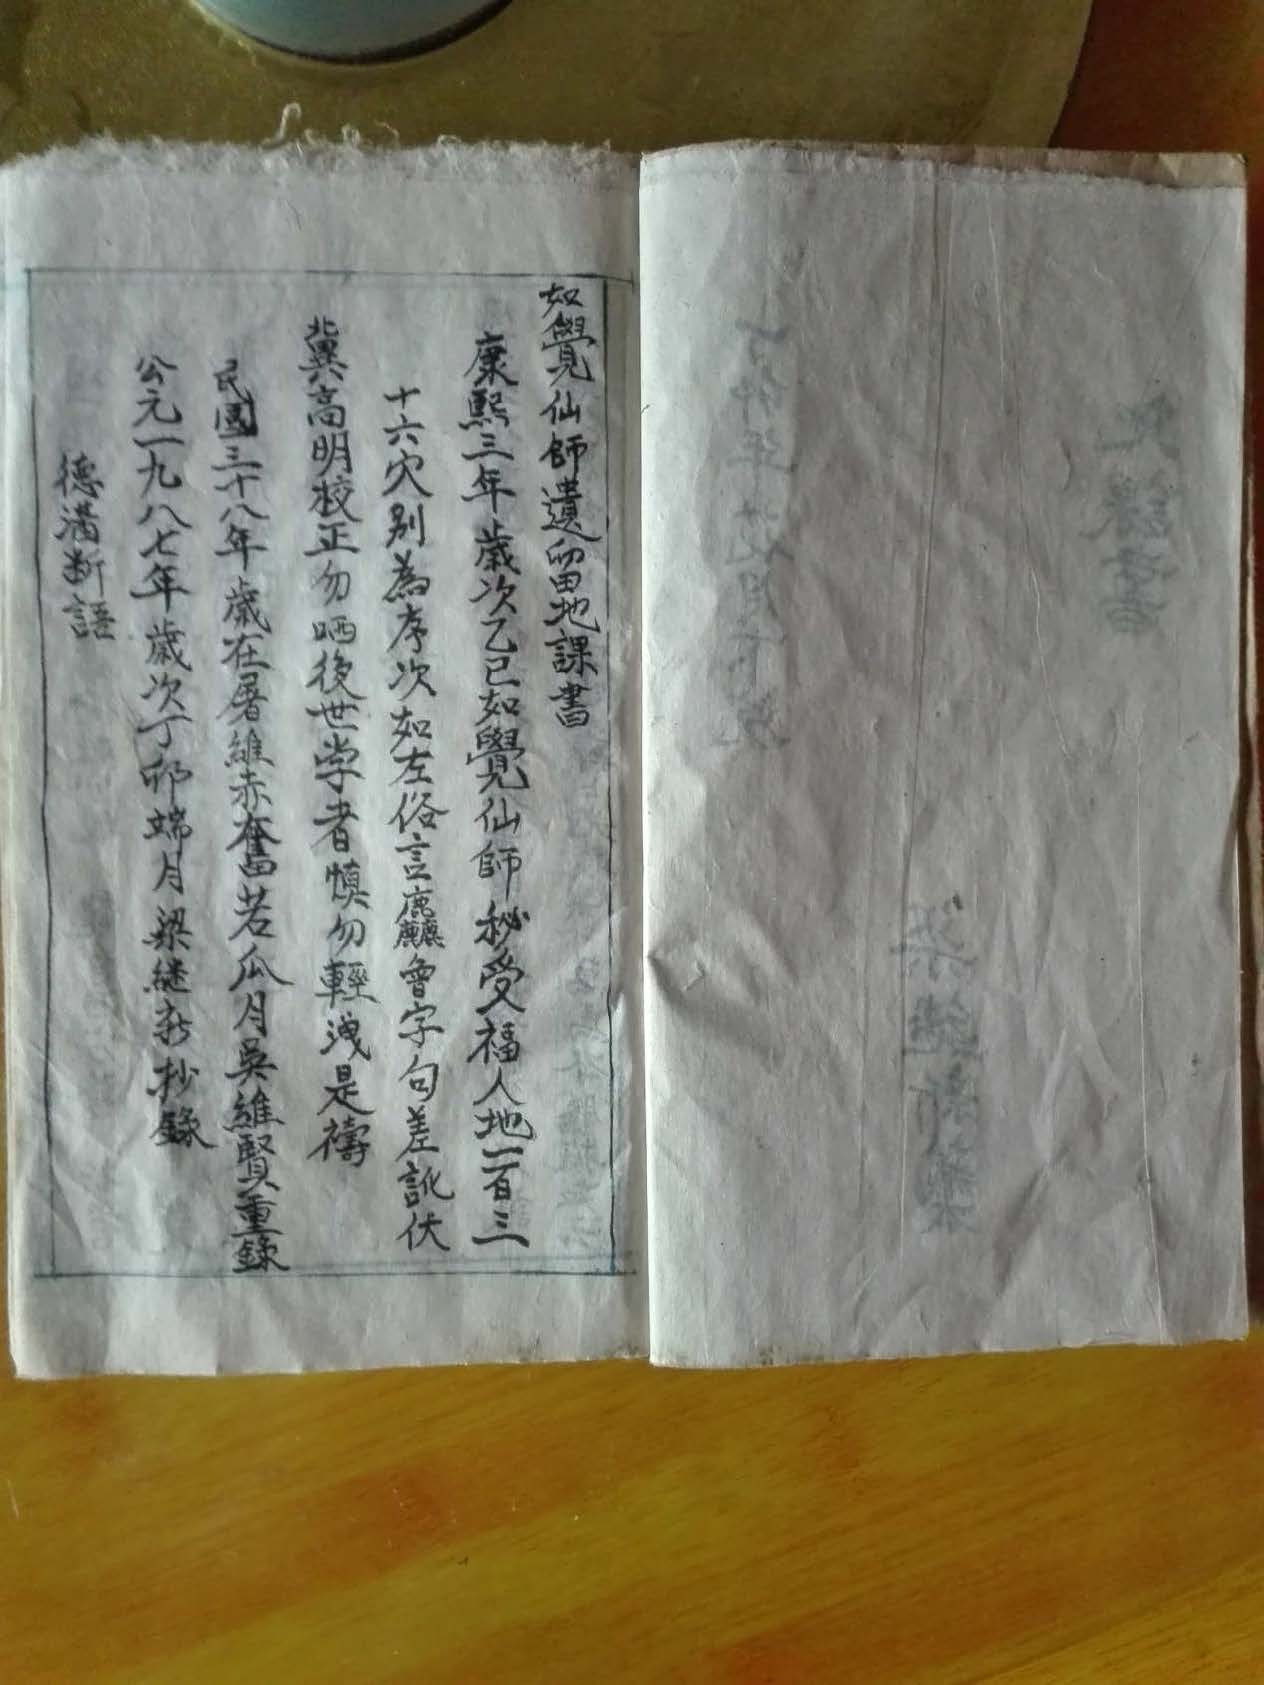 如覺仙師遺留地課書
康熙三年歲次乙巳如覺仙師秘受福人地一百三
十六穴别為序次如左俗言麤魯字句差訛伏
冀高明校正勿哂後世学者慎勿輕洩是禱
民國三十八年歲在屠維赤奮若瓜月吳維賢重錄
公元一九八七年歲次丁卯端月梁継新抄錄
德满断語